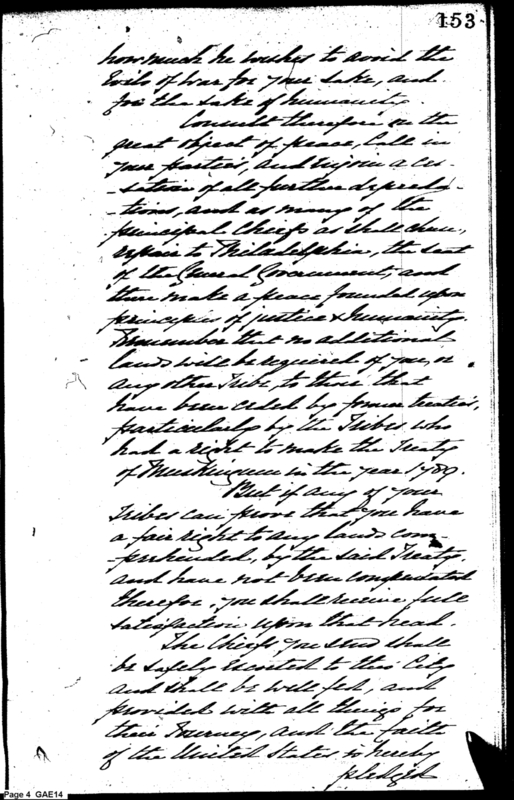 153
how much he wishes to avoid the
Evils of War for your sake, and
for the sake of humanity.
Consult therefore on the
great object of peace, Call in
your parties, and enjoin a ces-
-sation of all further depreda-
-tions, and as many of the
principal Chiefs as shall chuse,
repair to Philadelphia, the seat
of the General Government, and
there make a peace founded upon
principles of justice & humanity.
Remember that no additional
lands will be required of you, or
any other Tribe, to those that
have been ceded by former treaties,
particularly by the Tribes who
had a right to make the Treaty
of Muskingum in the year 1789.
But if any of your
Tribes can prove that you have
a fair right to any lands com-
-prehended, by the said Treaty,
and have not been compensated
therefor, you shall receive full
satisfaction upon that head.
The Chiefs you send shall
be safely escorted to this City
and shall be well fed, and
provided with all things for
their Journey, and the faith
of the United States is hereby
pledged
Page 4 GAE14